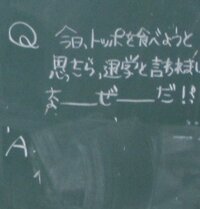 Q 今日、トッポを食べようと
思ったら、退学と言われまし
た ——ぜ——だ!!
A.